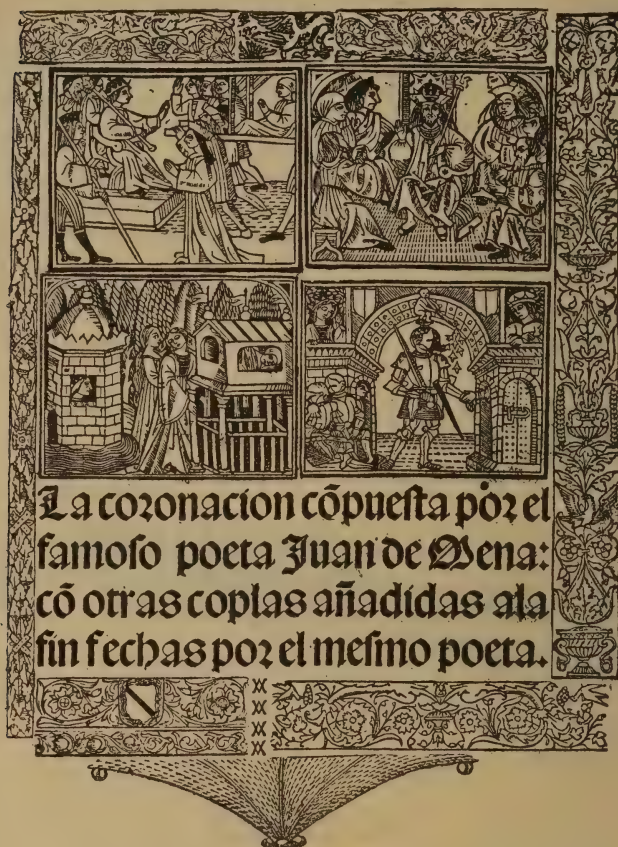 La coronacion cõpuesta por el
famoſo poeta Juan de Mena:
cõ otras coplas añadidas ala
fin fechas por el meſmo poeta.